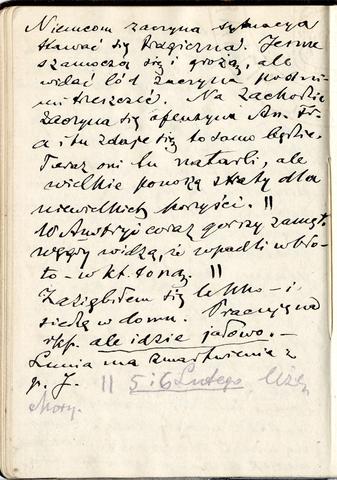 Niemcom zaczyna sytuacya
stawać się tragiczna. Jeszcze
szamoczą się i grożą, ale
widać lód zaczyna pod ni-
mi trzeszczeć. Na zachodzie
zaczyna się ofenzywa An. Fr.
a i tu zdaje się to samo będzie.
Teraz oni tu natarli, ale
wielkie ponoszą straty dla
niewielkich korzyści. ||
W Austryi coraz gorszy zamęt.
Węgry widzą, że wpadli w bło-
to - w kt. toną. ||
Zaziębiłem się lekko - i
siedzę w domu. Pracuję na
rkp. ale idzie jałowo. -
Lunia ma zmartwienie z
p. J. || 5 i 6 Lutego. Leżę
chory.